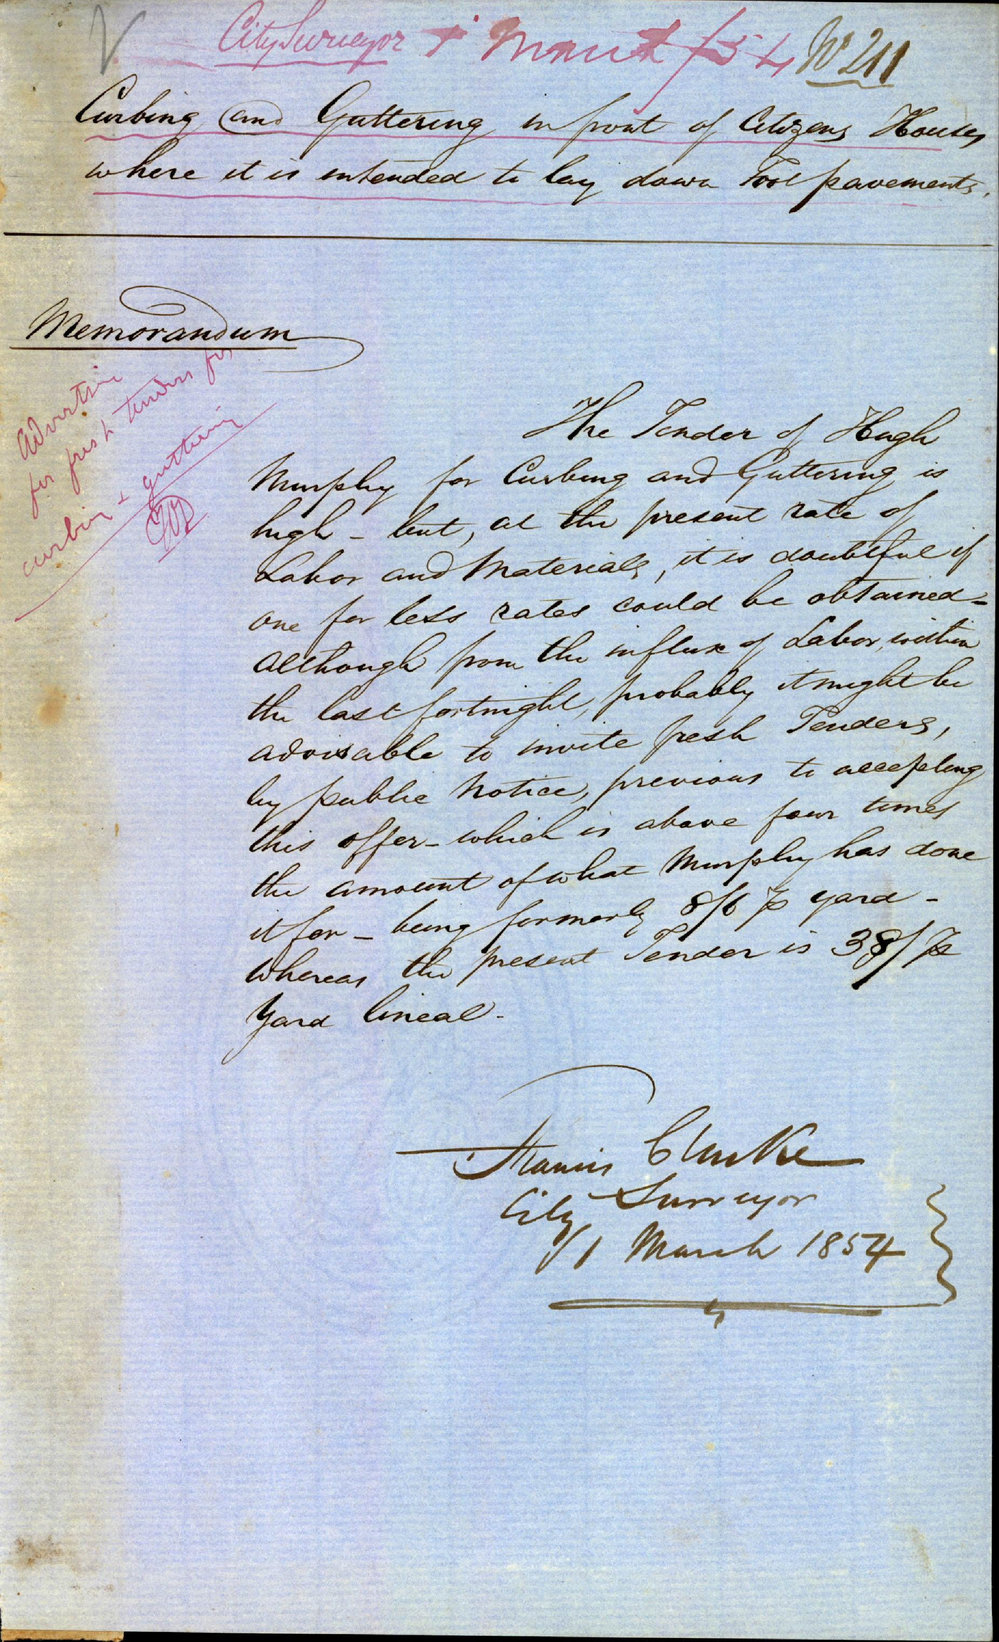 City Surveyor 1 March /54 No 211
Curbing and Guttering in front of Citizens Houses
where it is intended to lay down Foot pavements.
Memorandum
Advertise
for fresh tenders for
curbing & guttering
The Tender of Hugh
Murphy for Curbing and Guttering is
high - but, at the present rate of
Labor and Materials, it is doubtful if
one for less rates could be obtained -
although from the influx of Labor, within
the last fortnight, probably it might be
advisable to invite fresh Tenders,
by public Notice, previous to accepting
this offer - which is above four times
the amount of what Murphy has done
it for - being formerly 8/6 ⅌ yard -
whereas the present Tender is 38/ ⅌
Yard lineal -
Francis Clarke
City Surveyor
1 March 1854